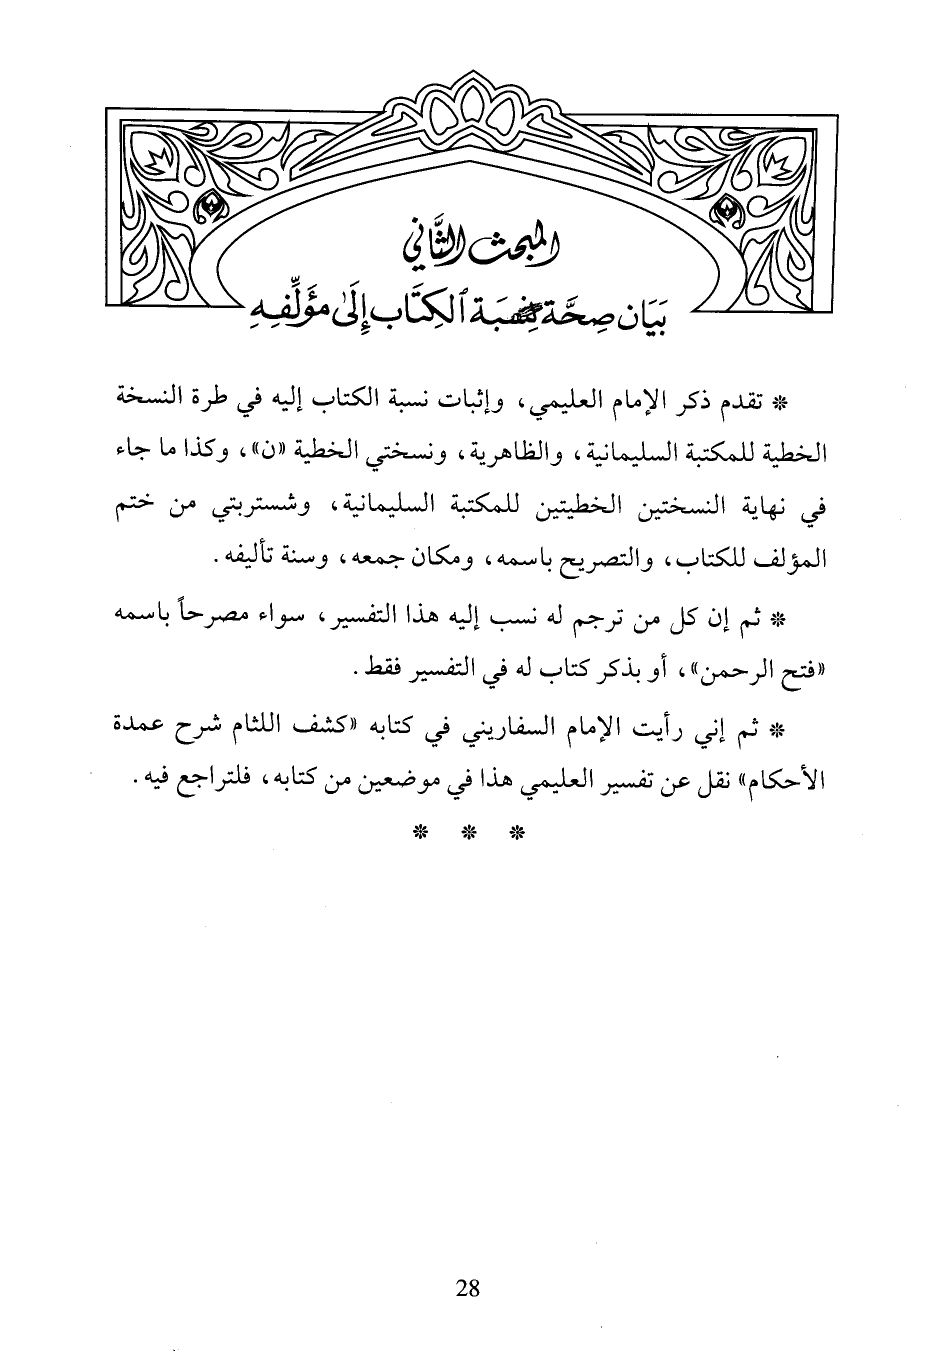 المبحث الثَّاني
بَيَان صِحَّة نِسْبَة ٱلكِتَاب إِلَىٰ مؤَلِّفِهِ
* تقدم ذكر الإمام العليمي، وإثبات نسبة الكتاب إليه في طرة النسخة
الخطية للمكتبة السليمانية، والظاهرية، ونسختي الخطية «ن»، وكذا ما جاء
في نهاية النسختين الخطيتين للمكتبة السليمانية، وشستربتي من ختم
المؤلف للكتاب، والتصريح باسمه، ومكان جمعه، وسنة تأليفه.
* ثم إن كل من ترجم له نسب إليه هذا التفسير، سواء مصرحاً باسمه
«فتح الرحمن»، أو بذكر كتاب له في التفسير فقط.
* ثم إني رأيت الإمام السفاريني في كتابه «كشف اللثام شرح عمدة
الأحكام» نقل عن تفسير العليمي هذا في موضعين من كتابه، فلتراجع فيه.
* * *
28